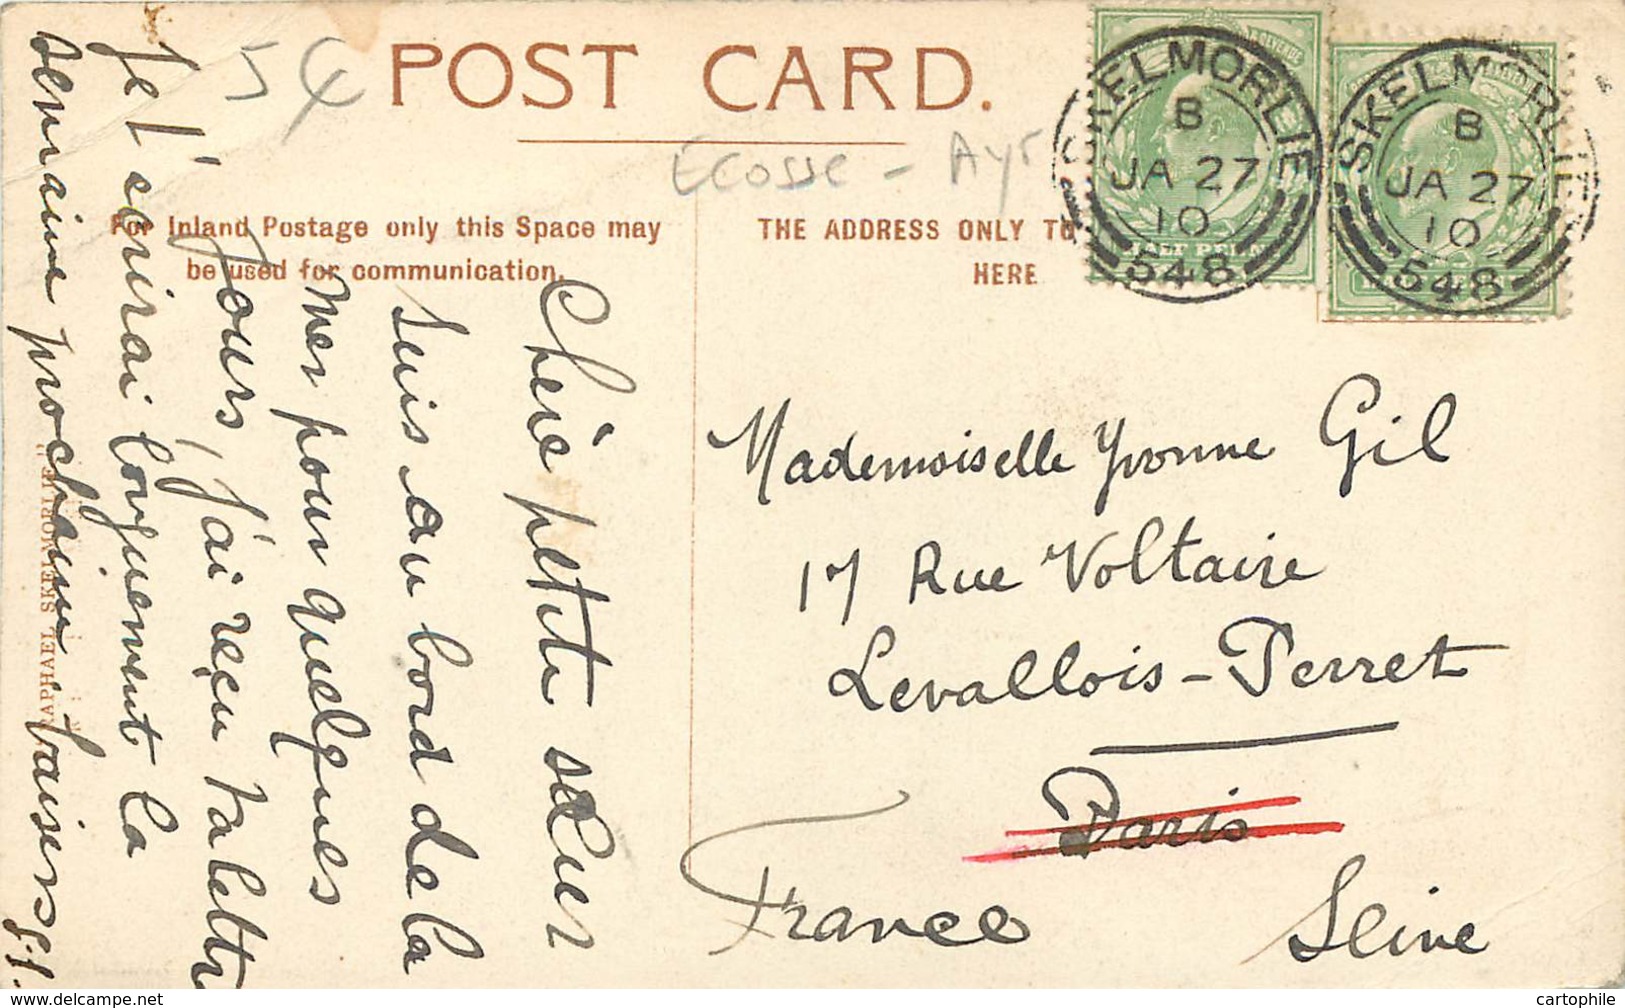 54
POST CARD.
Ecosse - Ayr
For Inland Postage only this Space may
be used for communication.
THE ADDRESS ONLY TO
HERE
SKELMORLIE
B
JA 27
10
548
SKELMORLIE
B
JA 27
10
548
Chère petite sœur
Suis au bord de la
Mer pour quelques
Jours, j'ai reçu ta lettre
Je t'écrirai longuement la
semaine prochaine baisers
Mademoiselle Yvonne Gil
17 Rue Voltaire
Levallois-Perret
Paris
France Seine
RAPHAEL SKELMORLIE
www.delcampe.net
cartophile